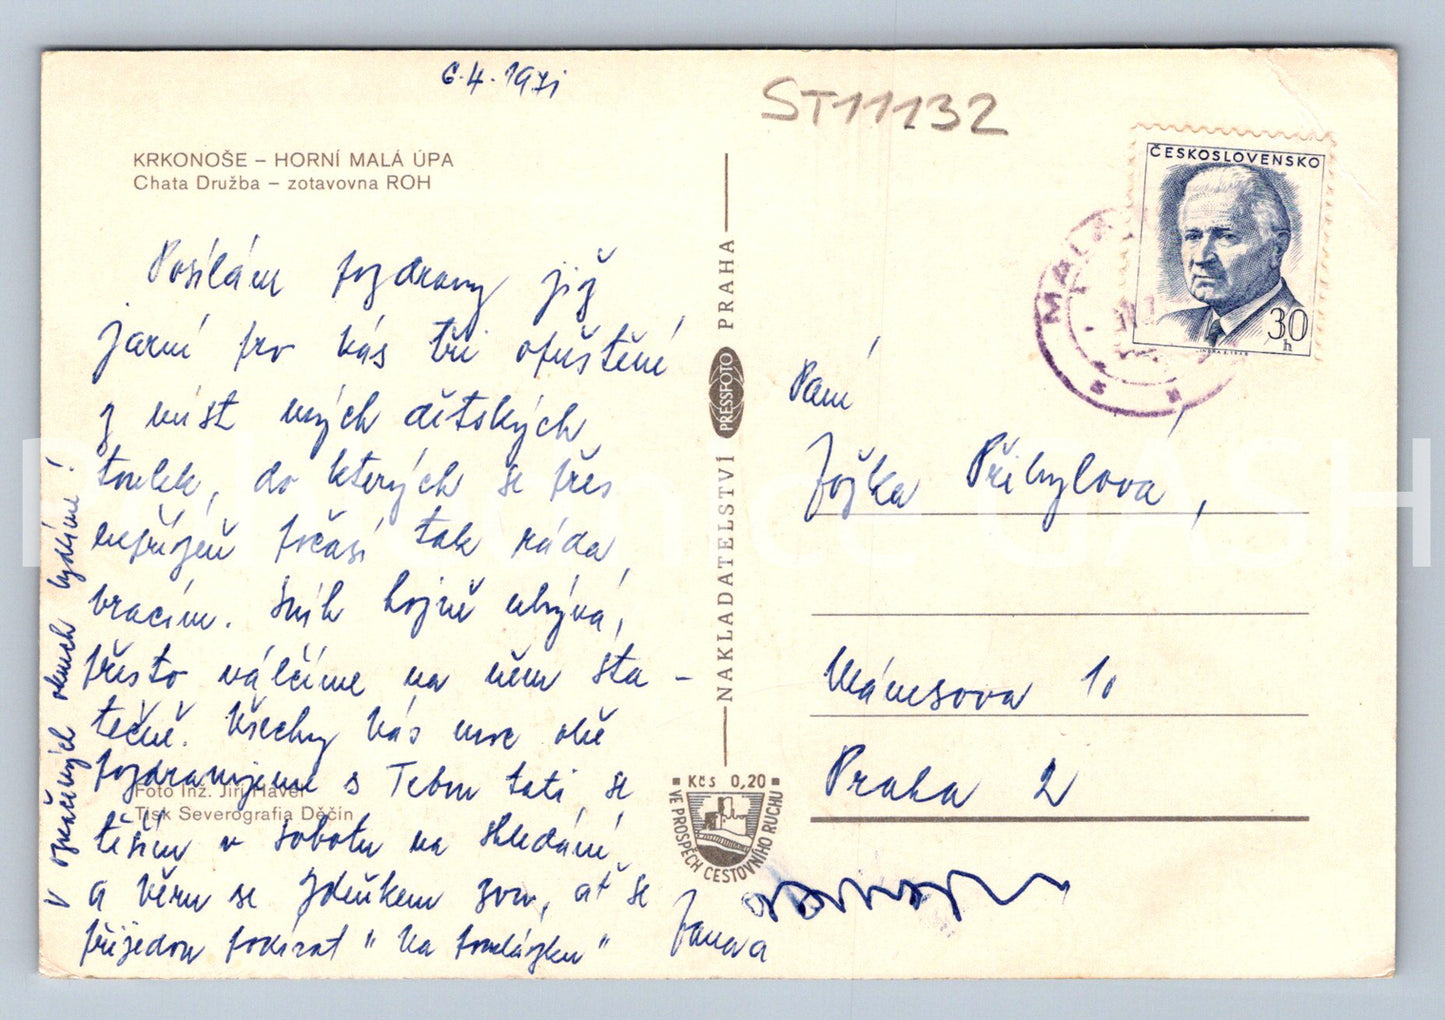 6.4.1971
ST11132
KRKONOŠE – HORNÍ MALÁ ÚPA
Chata Družba – zotavovna ROH
Posílám pozdravy již
jarní pro Vás tři opuštěné
z míst mých dětských
toulek, do kterých se přes
nepřízeň počasí tak ráda
vracím. Sníh hojně ubývá,
přesto válčíme na něm sta-
tečně. Všechny Vás moc
pozdravujeme s Tebou tati, se
těším v sobotu na shledání
a věru se Zdeňkem zvu, ať se
přijedou podívat "Na
Jana a
V označených oknech bydlíme!
Foto Inž. Jiří Havel
Tisk Severografia Děčín
NAKLADATELSTVÍ PRESSFOTO PRAHA
Kčs 0,20
VE PROSPĚCH CESTOVNÍHO RUCHU
ČESKOSLOVENSKO
30 h
MALÁ
Paní
Jožka Přibylová,
Mánesova 10
Praha 2